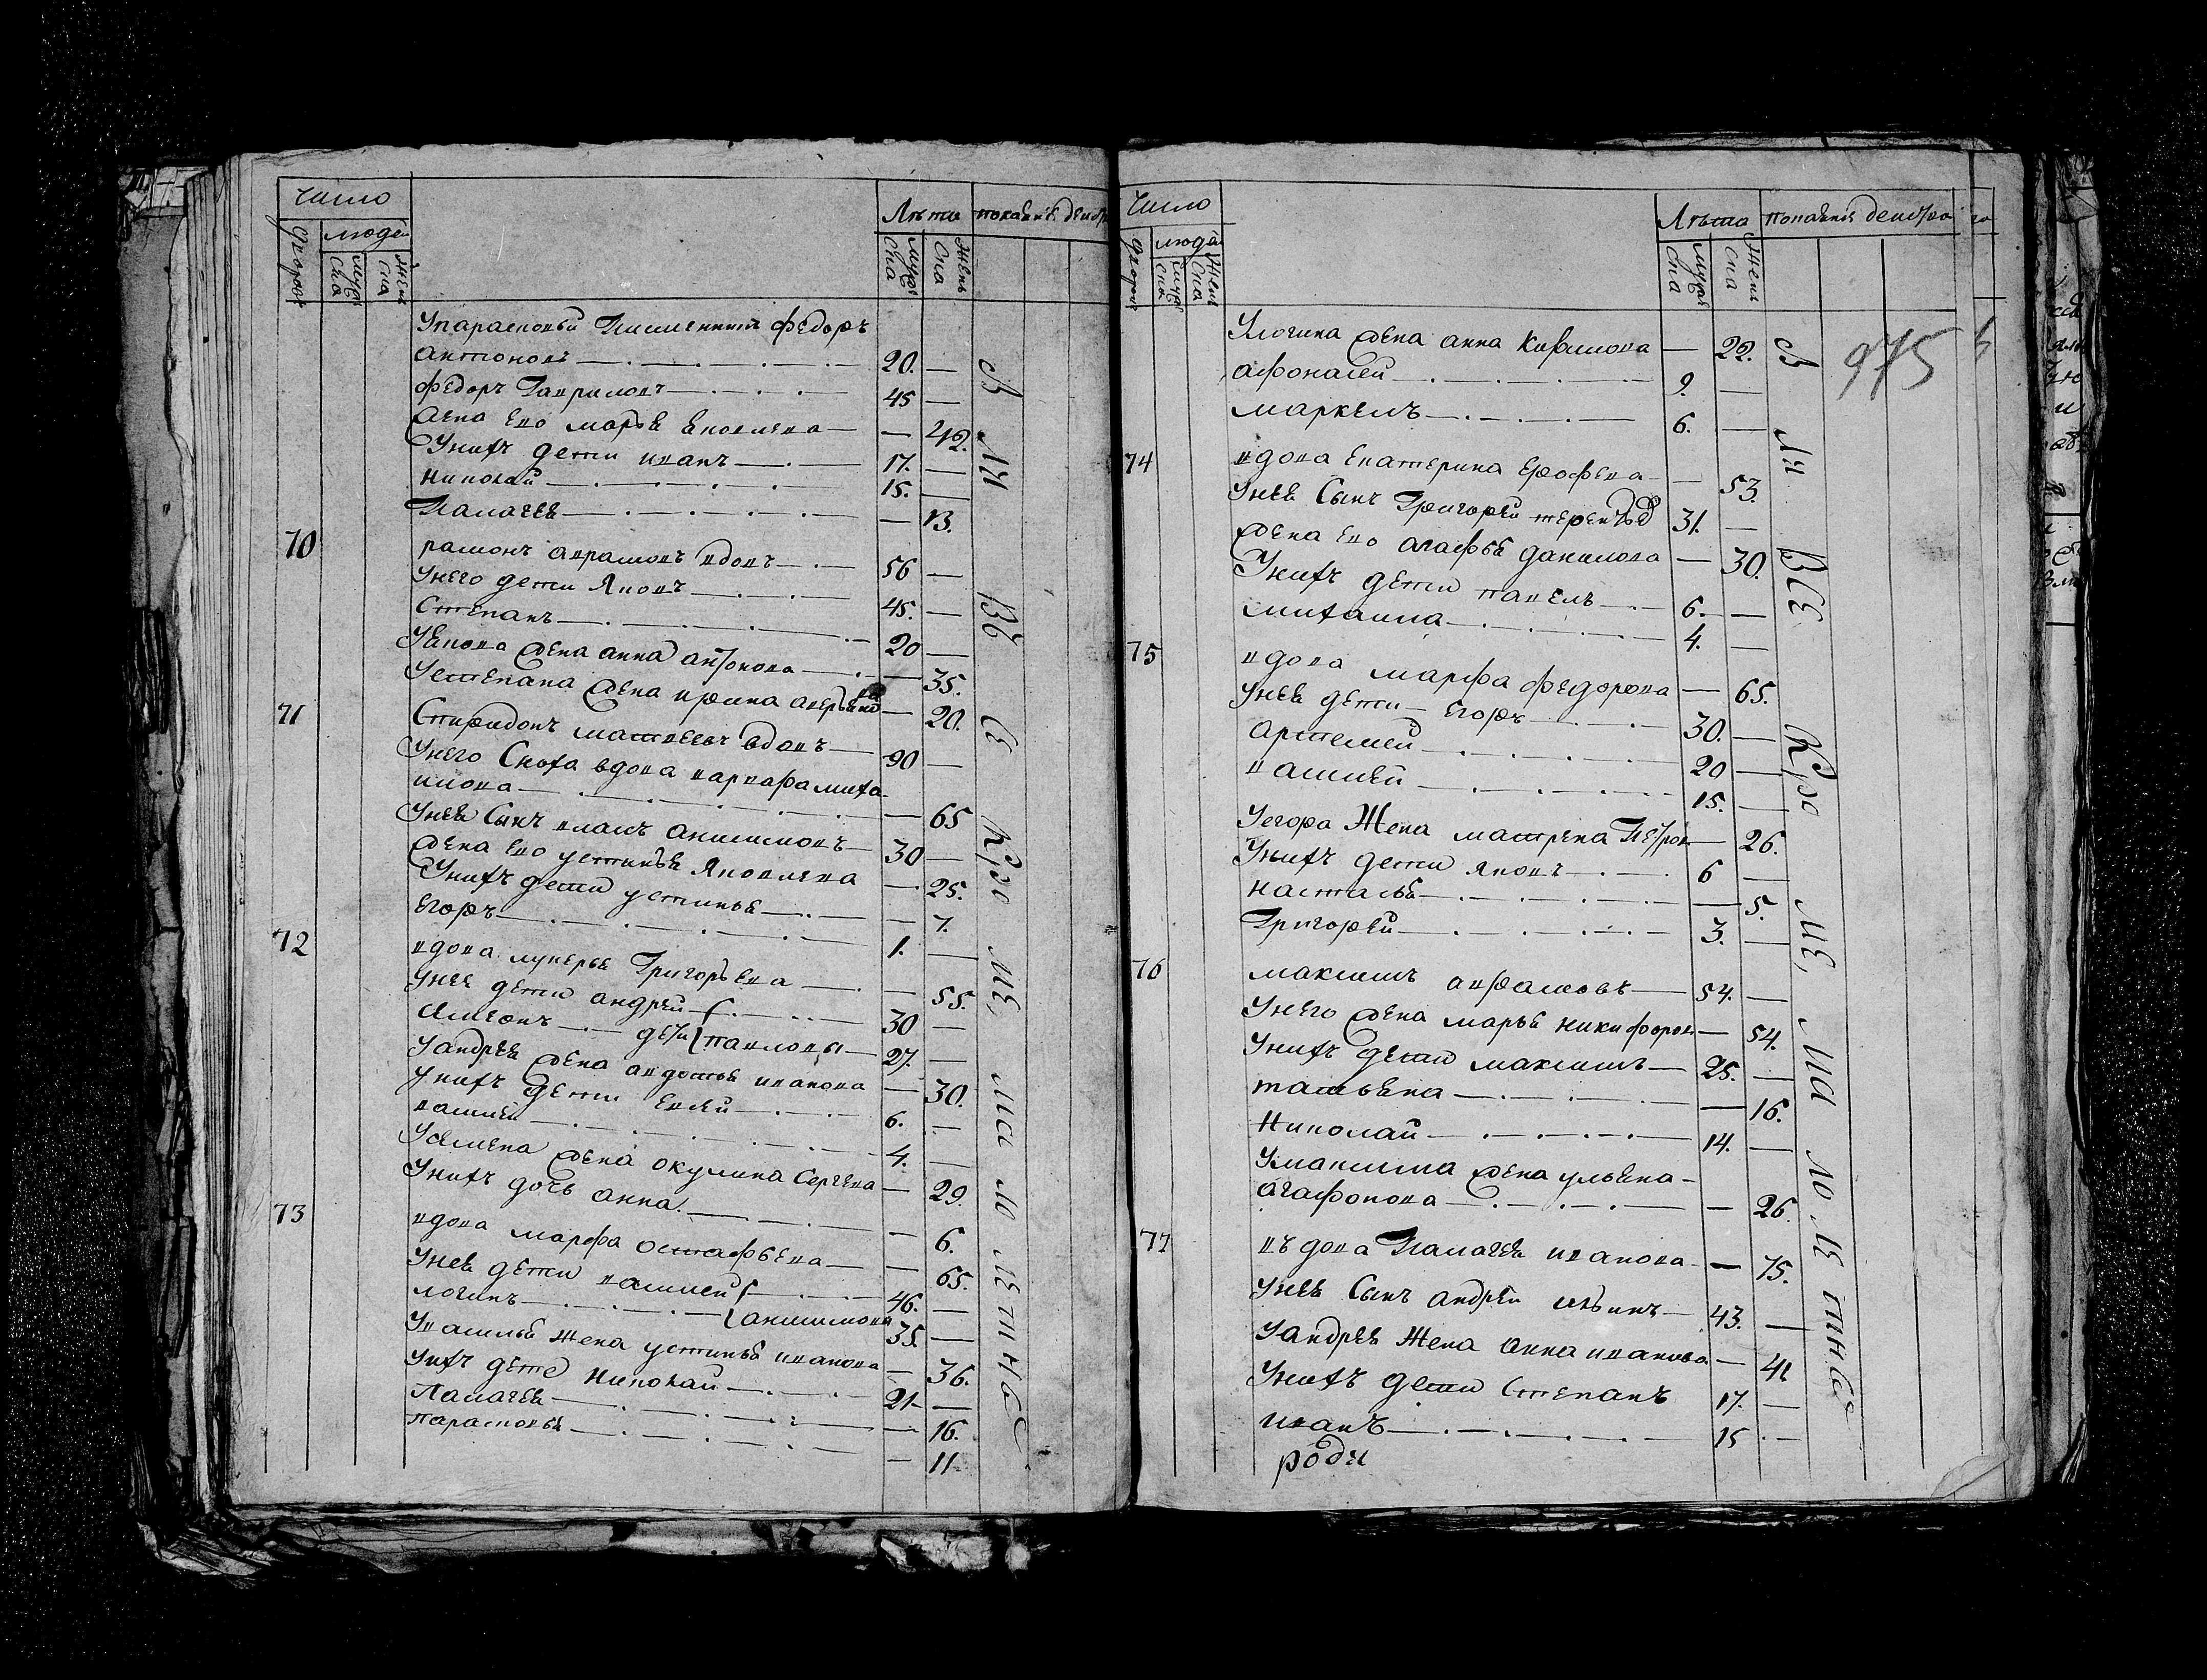 число
дворовъ
людей
мужеска
женска
лѣты
мужеска
женска
У парасковьи племенникъ федоръ
антоновъ 20. —
федоръ Гавриловъ 45 —
жена ево марья яковлева — 42.
У нихъ дети иванъ 17. —
николай 15. —
Палагея — 13.
70 рамонъ аврамовъ вдовъ 56 —
У него дети Яковъ 45. —
Степанъ 20 —
У Якова жена анна антонова — 35.
У степана жена ирина — 20.
71 Спиридонъ матвеевъ вдовъ 90 —
У него Сноха вдова варвара миха
илова — 65
У нея Сынъ власъ анисимовъ 30 —
жена ево устинья Яковлева — 25.
У нихъ дети устинья — 7.
Егоръ 1. —
72 вдова лукерья Григорьева — 55.
У нея дети андрей 30 —
Симеонъ — дети павловы 27. —
У андрея жена авдотья иванова — 30.
У нихъ дети Евсей 6. —
василей 4. —
У Симена жена окулина Сергеева — 29.
У нихъ дочь анна — 6.
73 вдова марфа остафьева — 65.
У нея дети василей 46. —
логинъ анисимовы 35. —
У василья жена устинья иванова — 36.
У нихъ дети николай 21. —
Палагея — 16.
Парасковья — 11.
В Ли ВЕ С Кро МЕ, Ма ло ЛЕ тнЫе
число
дворовъ
людей
мужеска
женска
Лѣта
мужеска
женска
975
У логина жена анна Кирилова — 22.
афонасей 9. —
маркелъ 6. —
74 вдова Екатерина Ерофеева — 53.
У нея Сынъ Григорей терентьевъ 31. —
жена ево агафья данилова — 30.
У нихъ дети павелъ 6. —
михаила 4. —
75 вдова марфа федорова — 65.
У нея дети — Егоръ 30. —
артемей 20 —
василей 15. —
У егора Жена матрена Петрова — 26.
У нихъ дети яковъ 6 —
настасья — 5.
Григорей 3. —
76 максимъ аврамовъ 54. —
У него жена марья никифорова — 54.
У нихъ дети максимъ 25. —
татьяна — 16.
Николай 14. —
У максима жена ульяна
агафонова — 26.
77 въдова Палагея иванова — 75.
У нея Сынъ андрей 43. —
У андрея Жена анна иванова — 41
У нихъ дети Степанъ 17. —
иванъ 15 —
роди
В Ли ВСЕ Кро МЕ, Ма ло ЛЕ тнЫе